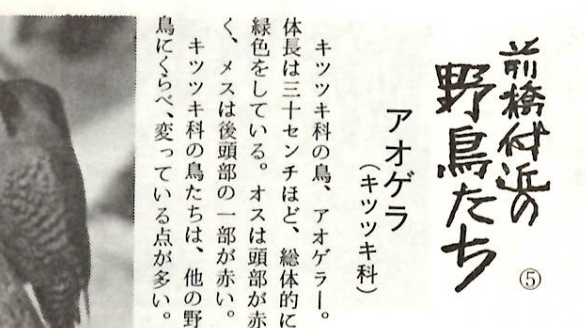 前橋付近の
野鳥たち
⑤
アオゲラ
(キツツキ科)
キツツキ科の鳥、アオゲラー。
体長は三十センチほど、総体的に
緑色をしている。オスは頭部が赤
く、メスは後頭部の一部が赤い。
キツツキ科の鳥たちは、他の野
鳥にくらべ、変っている点が多い。